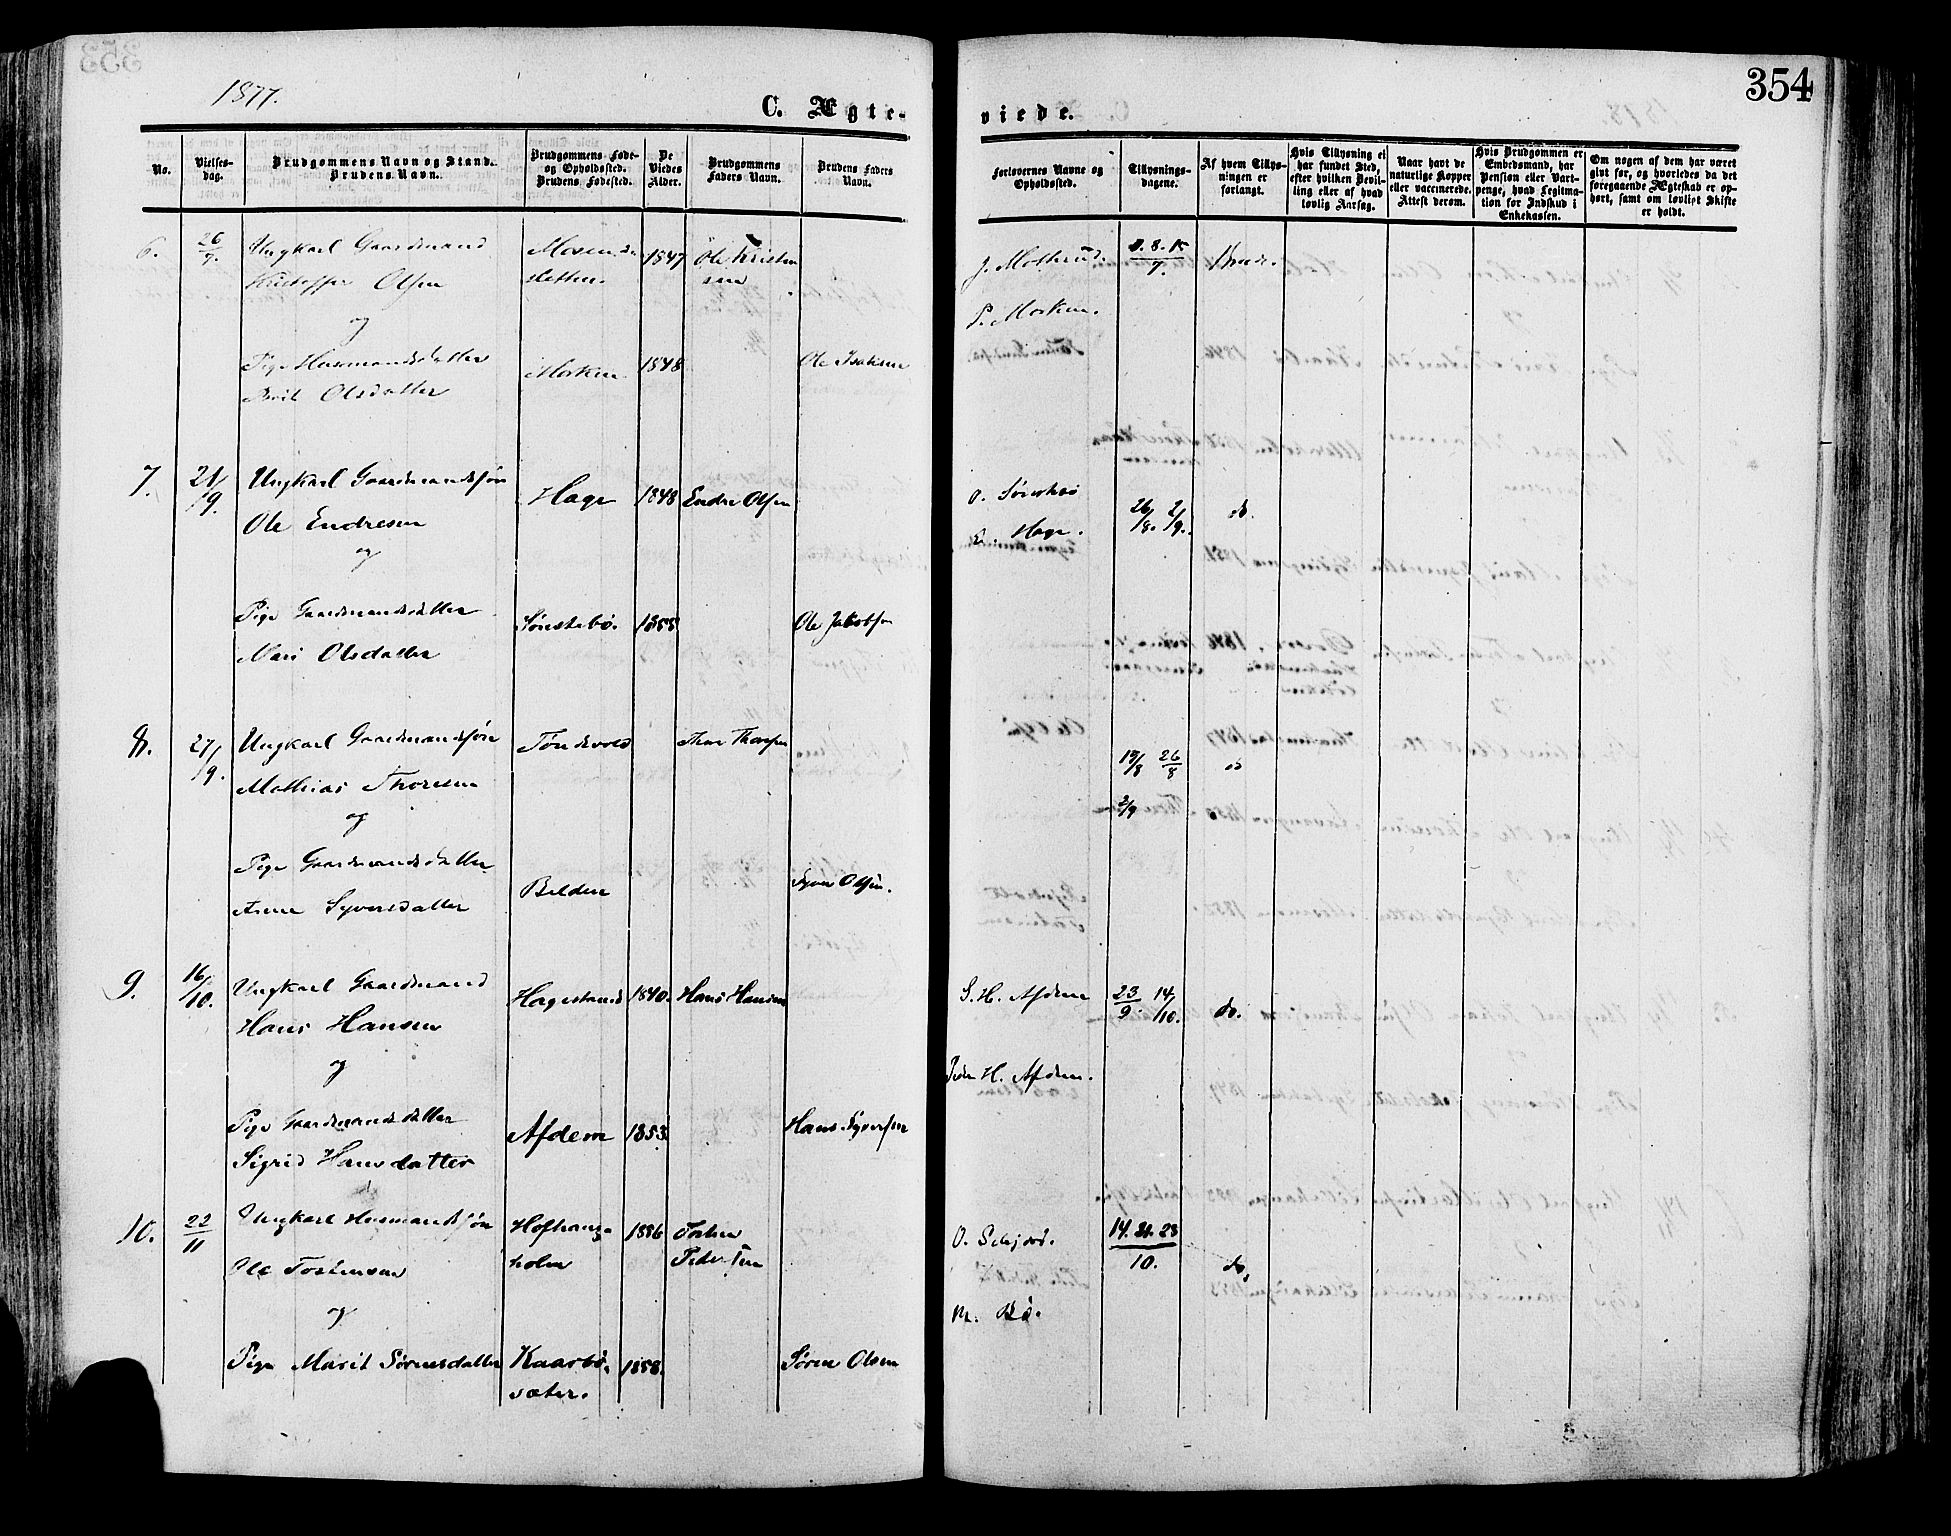 1877.
C. Ægte-
viede.
354
No.
Vielses-
dag.
Brudgommens Navn og Stand.
Brudens Navn.
Brudgommens Føde-
og Opholdssted.
Brudens Fødested.
De
Viedes
Alder.
Brudgommens
Faders Navn.
Brudens Faders
Navn.
Forlovernes Navne og
Opholdssted.
Tillysnings-
dagene.
Af hvem Tillys-
ningen er
forlangt.
Hvis Tillysning ei
har fundet Sted,
efter hvilken Bevil-
ling eller af hvad
lovlig Aarsag.
Naar havt de
naturlige Kopper
eller vaccinerede.
Attest derom.
Hvis Brudgommen er
Embedsmand, har
Pension eller Vart-
penge, hvad Legitima-
tion for Indskud i
Enkekassen.
Om nogen af dem har været
givt før, og hvorledes da det
foregaaende Ægteskab er op-
hørt, samt om lovligt Skifte
er holdt.
6. 26/7. Ungkarl Gaardmand 1847 Ole Kristen
sen
Olsen
og
Pige Husmandsdatter Morken 1848 Ole
Brit Olsdatter
P. Morken.
7. 21/9. Ungkarl Gaardmandssøn Hage 1848 Endre Olsen
Ole Endresen
og
Hage. 26/8. 2/9. do.
Pige Gaardmandsdatter Sønstebø. 1855 Ole Jakobsen
Mari Olsdatter
8. 27/9. Ungkarl Gaardmandssøn
Mathias Thoresen
og
19/8 26/8 do
2/9
Pige Gaardmandsdatter Belden Syver Olsen.
Anne Syversdatter
9. 16/10. Ungkarl Gaardmand Hagestand 1840. Hans Hansen
Hans Hansen
og
S. H. Afdem 23/9. 14/10. do.
Peder H. Afdem.
Pige Gaardmandsdatter Afdem 1853. Hans Syversen
Sigrid Hansdatter
10. 22/11 Ungkarl Husmandssøn 1856 Tosten
Ole Tostensen holm Pedersen
og
14. 21. 28
10. do.
M. Bø.
Pige Marit Sørensdatter Kaarbø- 1858. Søren Olsen
sæter.